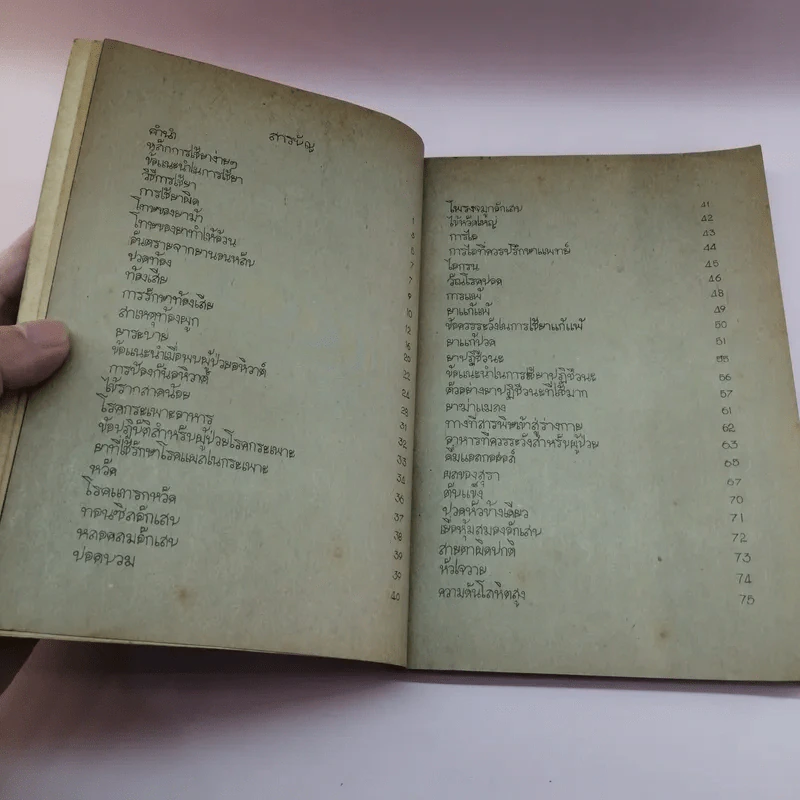 สารบัญ
คำนำ
หลักการใช้ยาง่ายๆ
ข้อแนะนำในการใช้ยา
วิธีการใช้ยา
การใช้ยาผิด 1
โทษของยาม้า 6
โทษของยาทำให้อ้วน
อันตรายจากยานอนหลับ 7
ปวดท้อง 7
ท้องเสีย 9
การรักษาท้องเสีย 10
สาเหตุท้องผูก 12
ยาระบาย
ข้อแนะนำเมื่อพบผู้ป่วยอหิวาต์ 20
การป้องกันอหิวาต์ 22
ไข้รากสาดน้อย 24
โรคกระเพาะอาหาร 28
ข้อปฏิบัติสำหรับผู้ป่วยโรคกระเพาะ 31
ยาที่ใช้รักษาโรคแผลในกระเพาะ 32
หวัด 33
โรคแทรกหวัด 36
ทอนซิลอักเสบ 37
หลอดลมอักเสบ 38
ปอดบวม 39
39
40
โพรงจมูกอักเสบ 41
ไข้หวัดใหญ่ 42
การไอ 43
การไอที่ควรปรึกษาแพทย์ 44
ไอกรน 45
วัณโรคปอด 46
การแพ้ 48
ยาแก้แพ้ 49
ข้อควรระวังในการใช้ยาแก้แพ้ 50
ยาแก้ปวด 51
ยาปฏิชีวนะ 55
ข้อแนะนำในการใช้ยาปฏิชีวนะ 56
ตัวอย่างยาปฏิชีวนะที่ใช้มาก 57
ยาฆ่าแมลง 61
ทางที่สารพิษเข้าสู่ร่างกาย 62
อาหารที่ควรระวังสำหรับผู้ป่วย 63
ดื่มแอลกอฮอล์ 65
ผลของสุรา 67
ตับแข็ง 70
ปวดหัวข้างเดียว 71
เยื่อหุ้มสมองอักเสบ 72
สายตาผิดปกติ 73
หัวใจวาย 74
ความดันโลหิตสูง 75